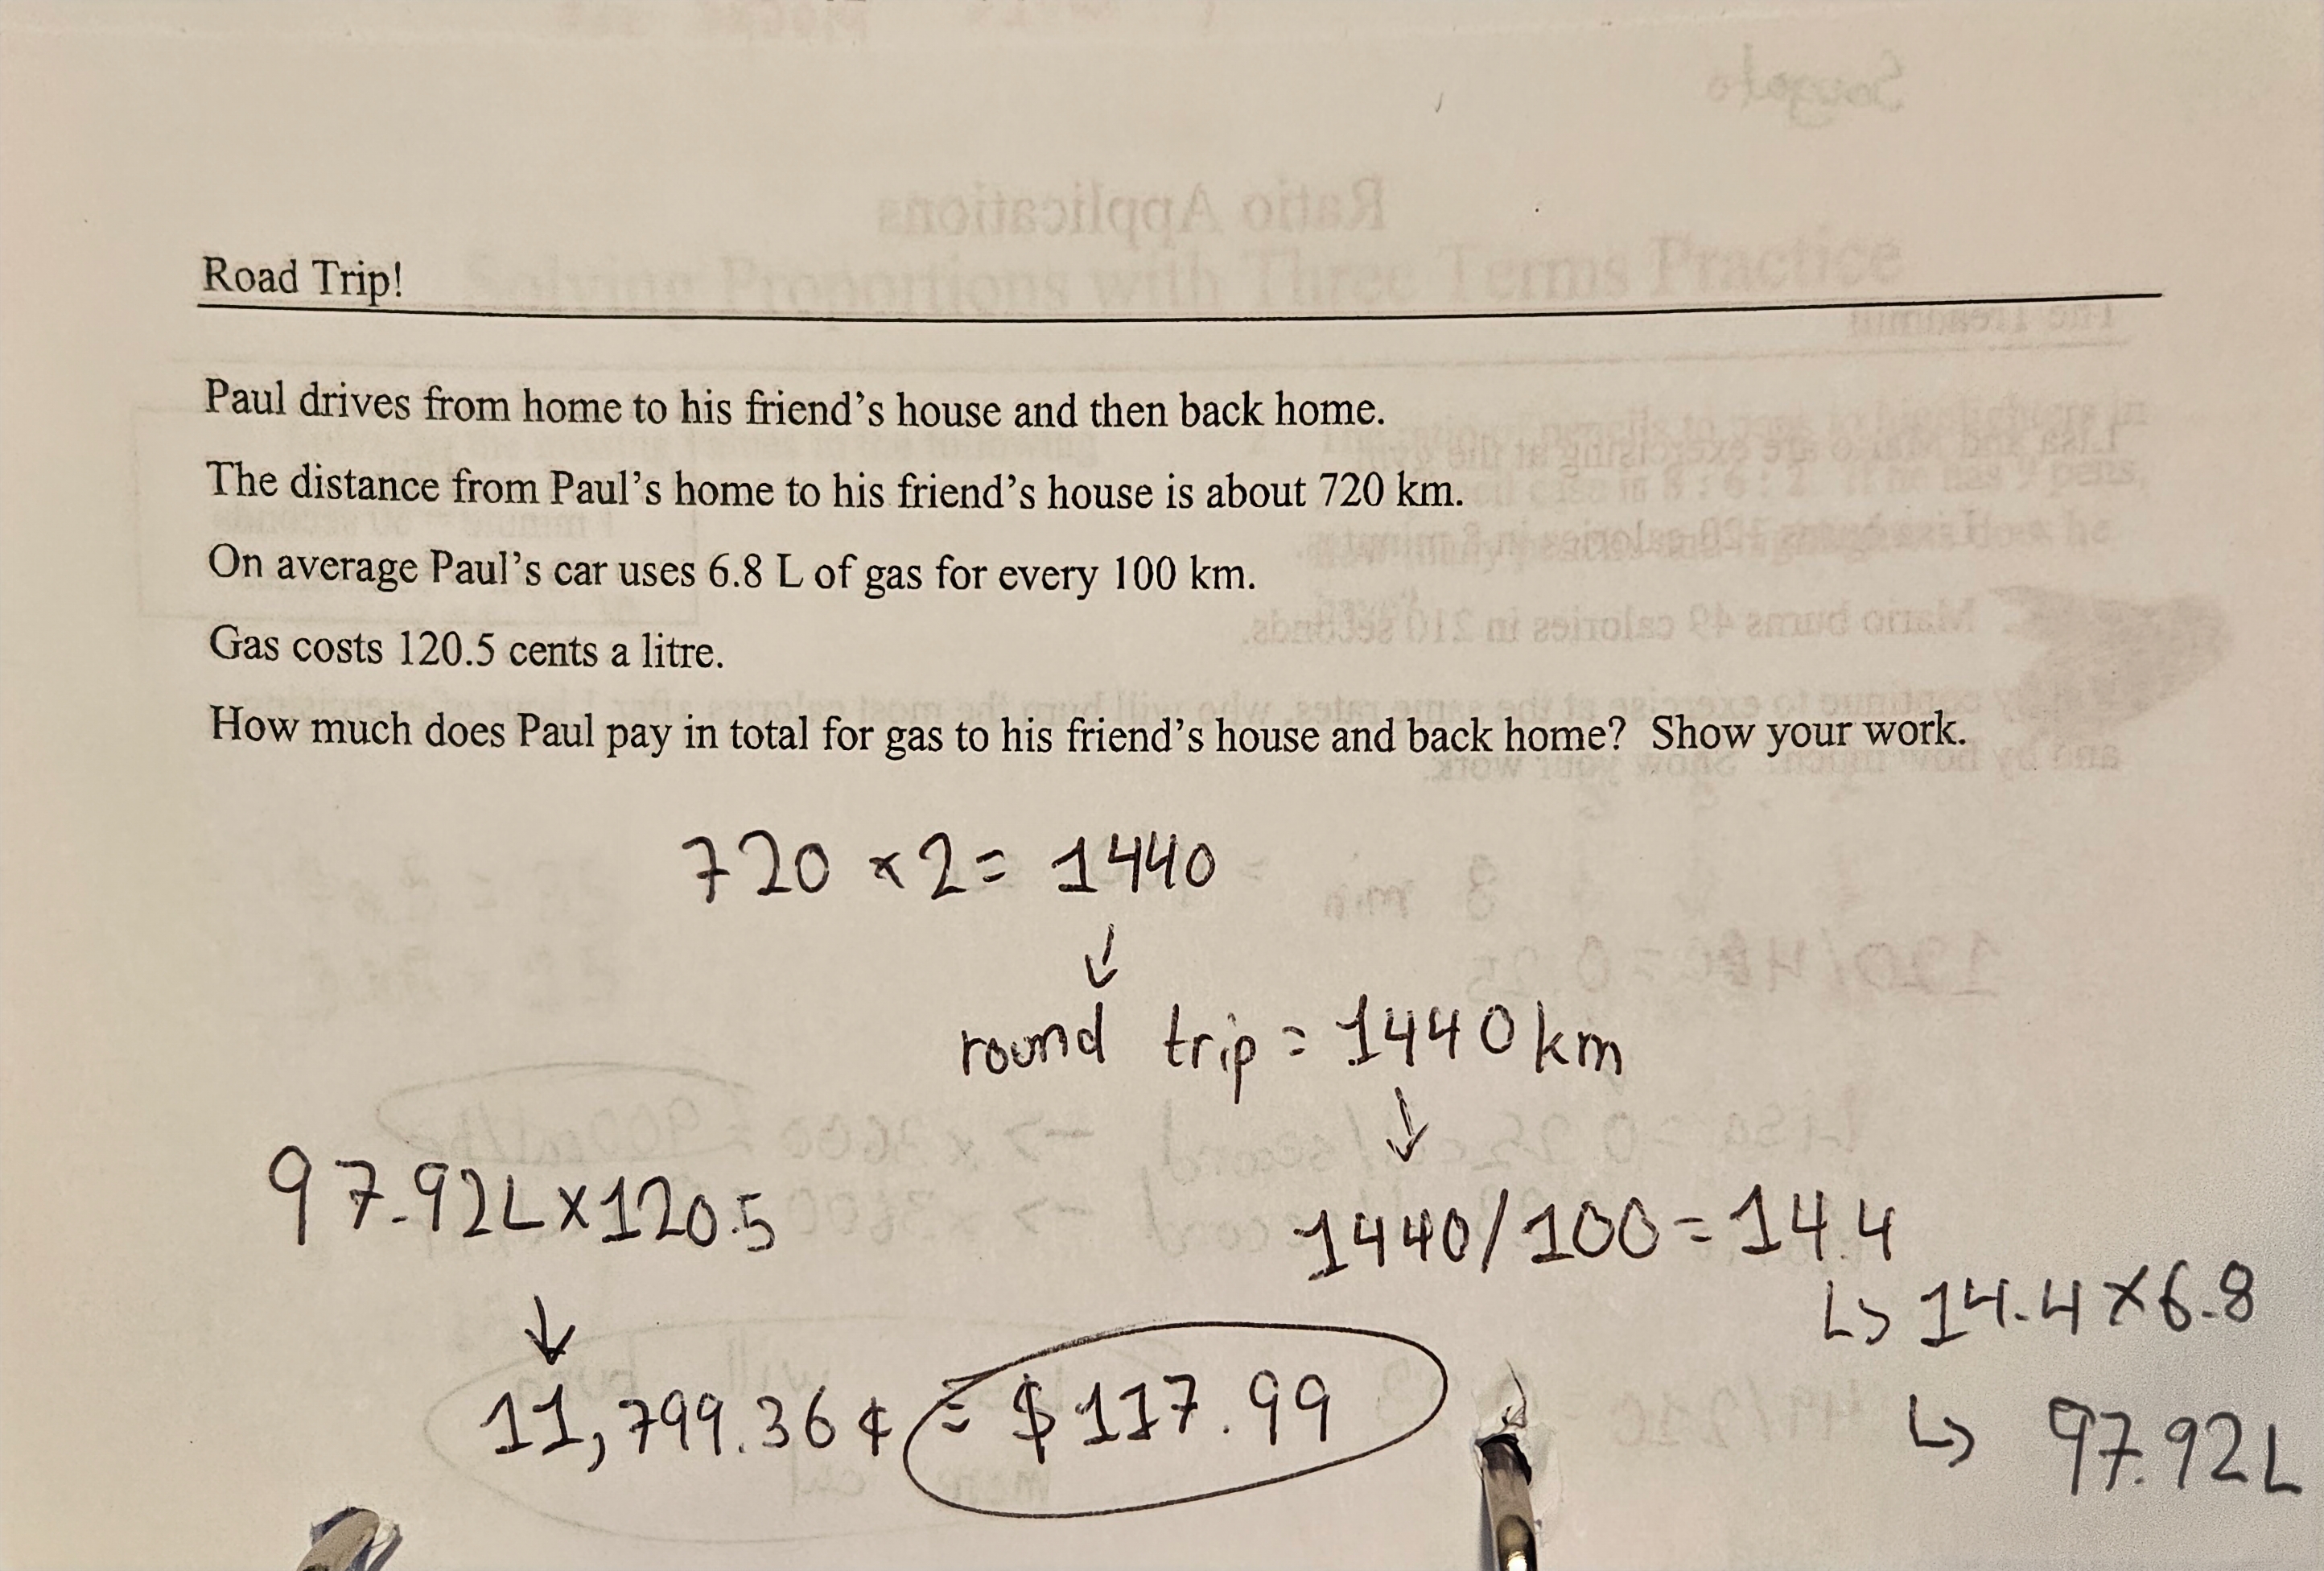 Road Trip!
Paul drives from home to his friend's house and then back home.
The distance from Paul's home to his friend's house is about 720 km.
On average Paul's car uses 6.8 L of gas for every 100 km.
Gas costs 120.5 cents a litre.
How much does Paul pay in total for gas to his friend's house and back home? Show your work.
720 × 2 = 1440
↓
round trip = 1440 km
↓
1440/100 = 14.4
↳ 14.4 × 6.8
↳ 97.92L
97.92L × 120.5
↓
11,799.36 ¢ = $117.99